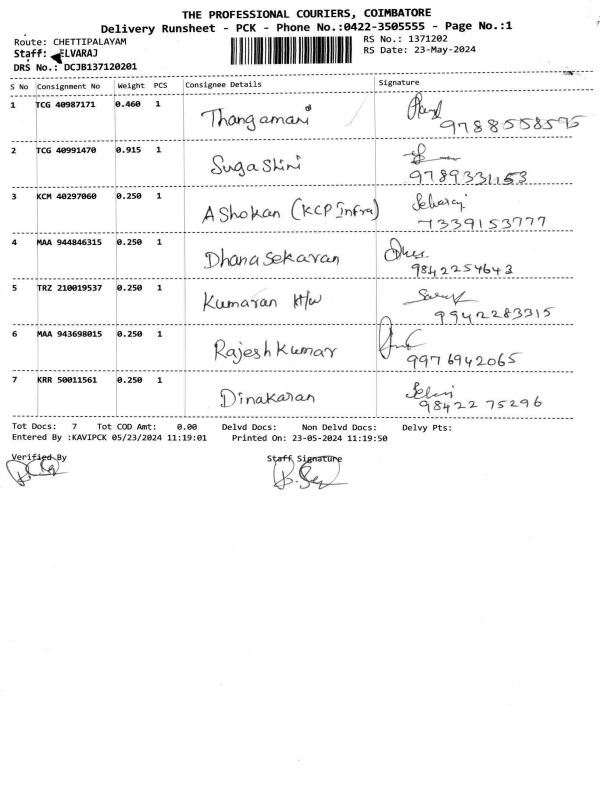 THE PROFESSIONAL COURIERS, COIMBATORE
Delivery Runsheet - PCK - Phone No.:0422-3505555 - Page No.:1
Route: CHETTIPALAYAM RS No.: 1371202
Staff: ELVARAJ RS Date: 23-May-2024
DRS No.: DCJB137120201
S No Consignment No Weight PCS Consignee Details Signature
1 TCG 40987171 0.460 1 Thangamani
9788558595
2 TCG 40991470 0.915 1 Sugashini
9789331153
3 KCM 40297060 0.250 1 AShokan (KCP Infra)
7339153777
4 MAA 944846315 0.250 1 Dhanasekaran
9842254643
5 TRZ 210019537 0.250 1 Kumaran H/w
9942283315
6 MAA 943698015 0.250 1 Rajeshkumar
9976942065
7 KRR 50011561 0.250 1 Dinakaran
98422 75296
Tot Docs: 7 Tot COD Amt: 0.00 Delvd Docs: Non Delvd Docs: Delvy Pts:
Entered By :KAVIPCK 05/23/2024 11:19:01 Printed On: 23-05-2024 11:19:50
Verified By Staff Signature